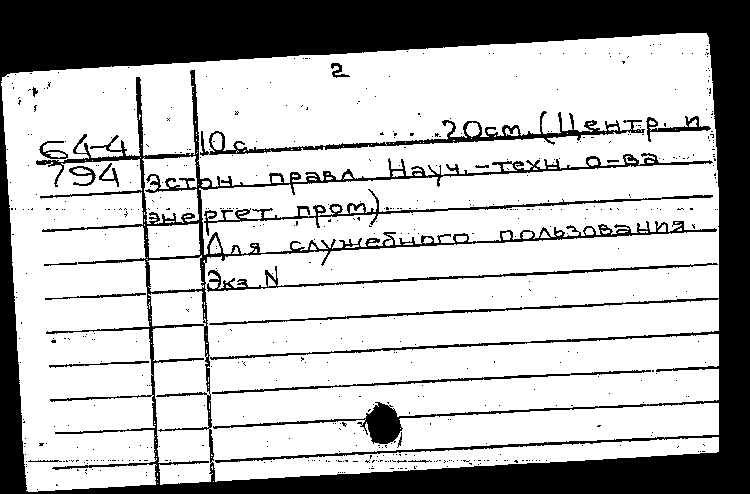 2
64-4 10 с. .... 20см. (Центр. и
794 Эстон. правл. Науч.-техн. о-ва
энергет. пром.).
Для служебного пользования.
Экз. N